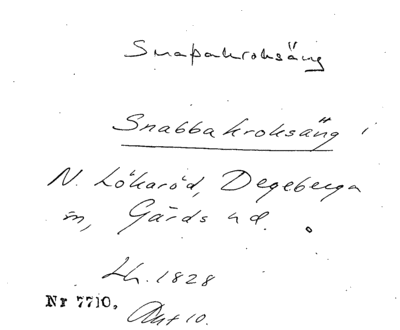 Snapakroksäng
Snabbakroksäng i
N. Lökaröd, Degeberga
sn, Gärds hd.
Lh. 1828
Nr 7710.
Akt 10.